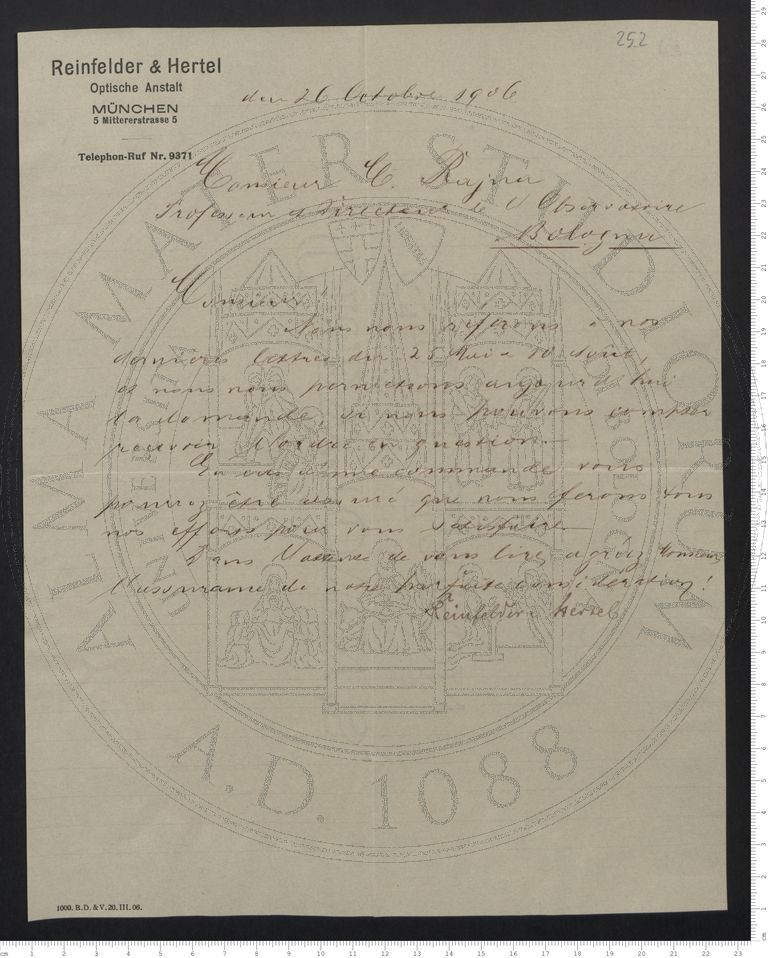 252
Reinfelder & Hertel
Optische Anstalt
MÜNCHEN
5 Mittererstrasse 5
Telephon-Ruf Nr. 9371
den 26 Octobre 1906
Monsieur C. Rajna
Professeur et Directeur de l'Observatoire
Bologna
Monsieur!
Nous nous référons à nos
dernières lettres du 25 Mai & 10 Août,
et nous nous permettons aujourd'hui
la demande, si nous pouvons compter
recevoir l'ordre en question.—
En cas d'une commande vous
pouvez être assuré que nous ferons tous
nos efforts pour vous satisfaire.—
Dans l'attente de vous lire, agréez Monsieur
l'assurance de notre parfaite considération!
Reinfelder & Hertel
1000. B.D. & V. 20. III. 06.
ALMA MATER STUDIORUM
A.D. 1088